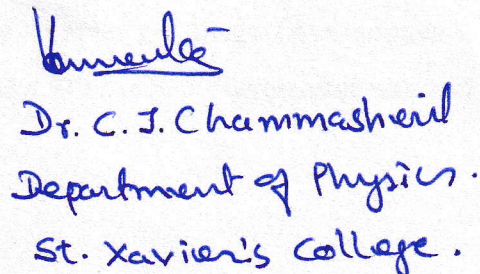 Dr. C. J. Chammasheril
Department of Physics.
St. Xavier's College.